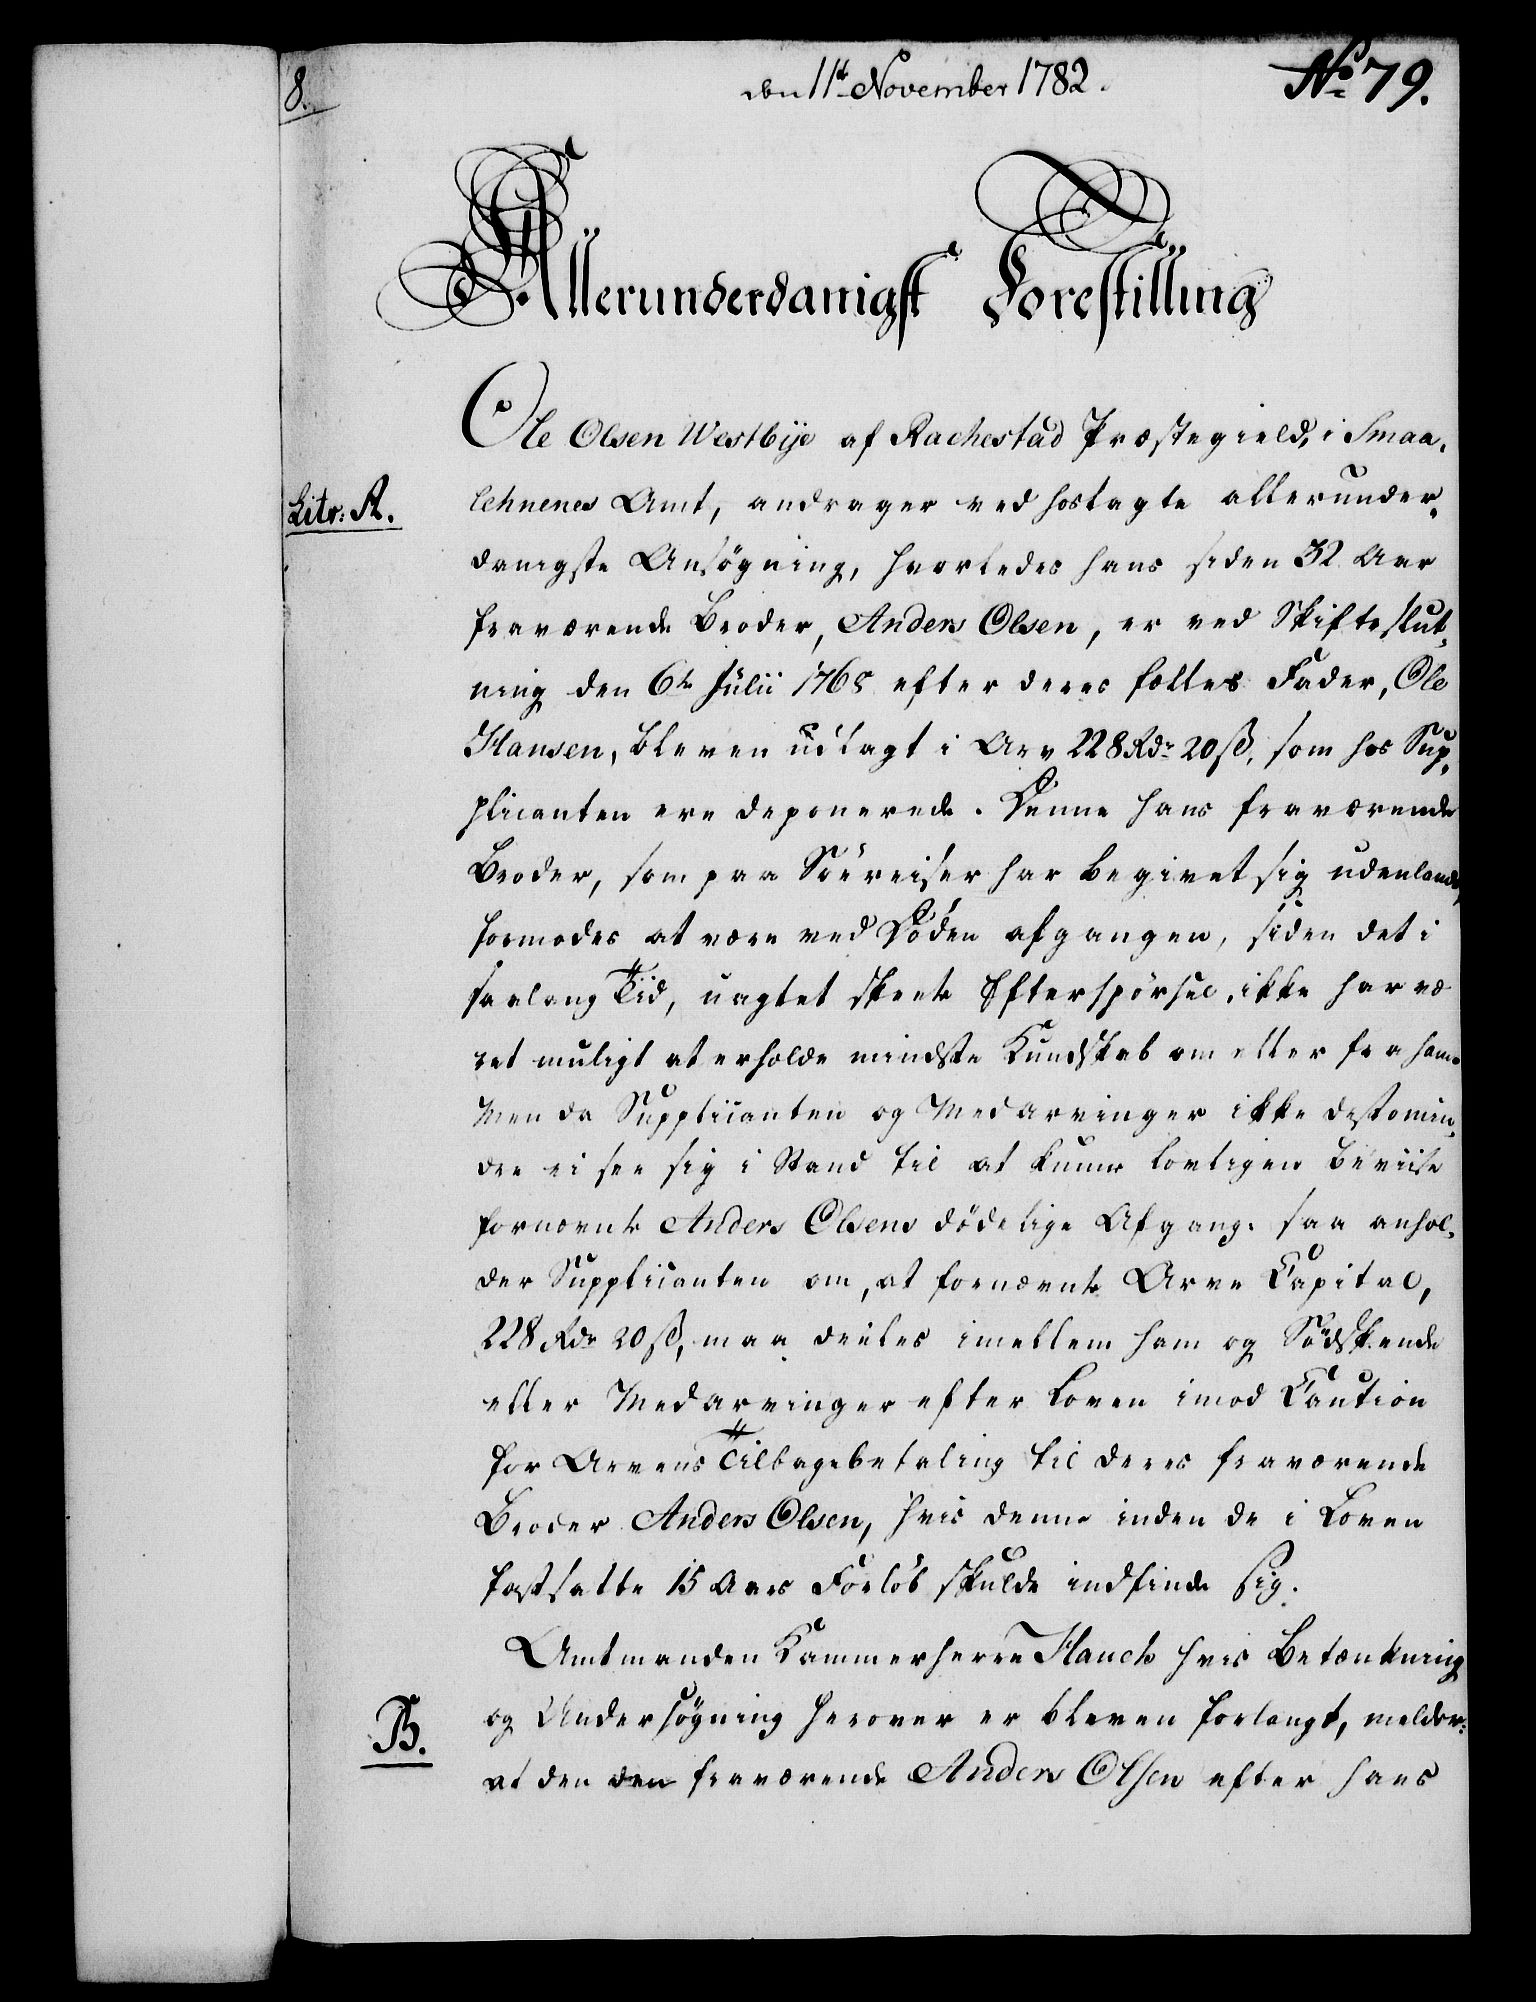 8.
den 11te November 1782.
No 79.
Allerunderdanigst Forestilling
Ole Olsen Westbye af Rachestad Præstegield, i Smaa-
Litr: A.
lehnenes Amt, andrager ved hoslagte allerunder-
danigste Ansøgning, hvorledes hans siden 32 Aar
fraværende Broder, Anders Olsen, er ved Skifteslut-
ning den 6te Julii 1765 efter deres fælles Fader, Ole
Hansen, bleven udlagt i Arv 228 Rdr 20 ß, som hos Sup-
plicanten ere deponerede. Denne hans fraværende
Broder, som paa Söereiser har begivet sig udenlands,
formodes at være ved Döden afgangen, siden det i
saa lang Tid, uagtet skeete Efterspörsel, ikke har væ-
ret muligt at erholde mindste Kundskab om eller fra ham.
Men da Supplicanten og Medarvinger ikke destomin-
dre ei see sig i Stand til at kunne lovligen beviise
fornævnte Anders Olsens dödelige Afgang. saa anhol-
der Supplicanten om, at fornævnte Arve Capital,
228 Rdr 20 ß, maa deeles imellem ham og Södskende
eller Medarvinger efter Loven imod Caution
for Arvens Tilbagebetaling til deres fraværende
Broder Anders Olsen, hvis denne inden de i Loven
fastsatte 15 Aars Forlöb skulde indfinde sig.
Amtmanden Kammerherre Hauch hvis Betænkning
B.
og Undersögning herover er bleven forlangt, melder:
at den den fraværende Anders Olsen efter hans